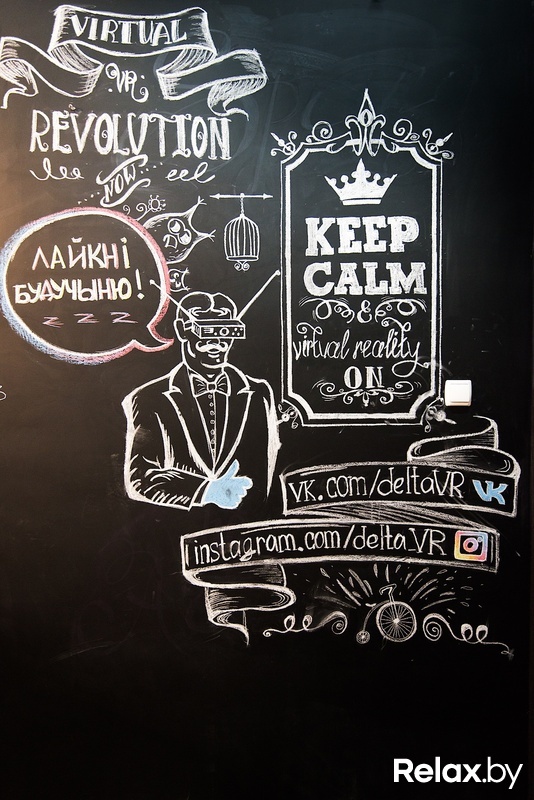 VIRTUAL
VR
REVOLUTION
NOW
ЛАЙКНІ
БУДУЧЫНЮ!
Z Z Z
KEEP
CALM
&
virtual reality
ON
VK.com/deltaVR
instagram.com/delta_VR
Relax.by